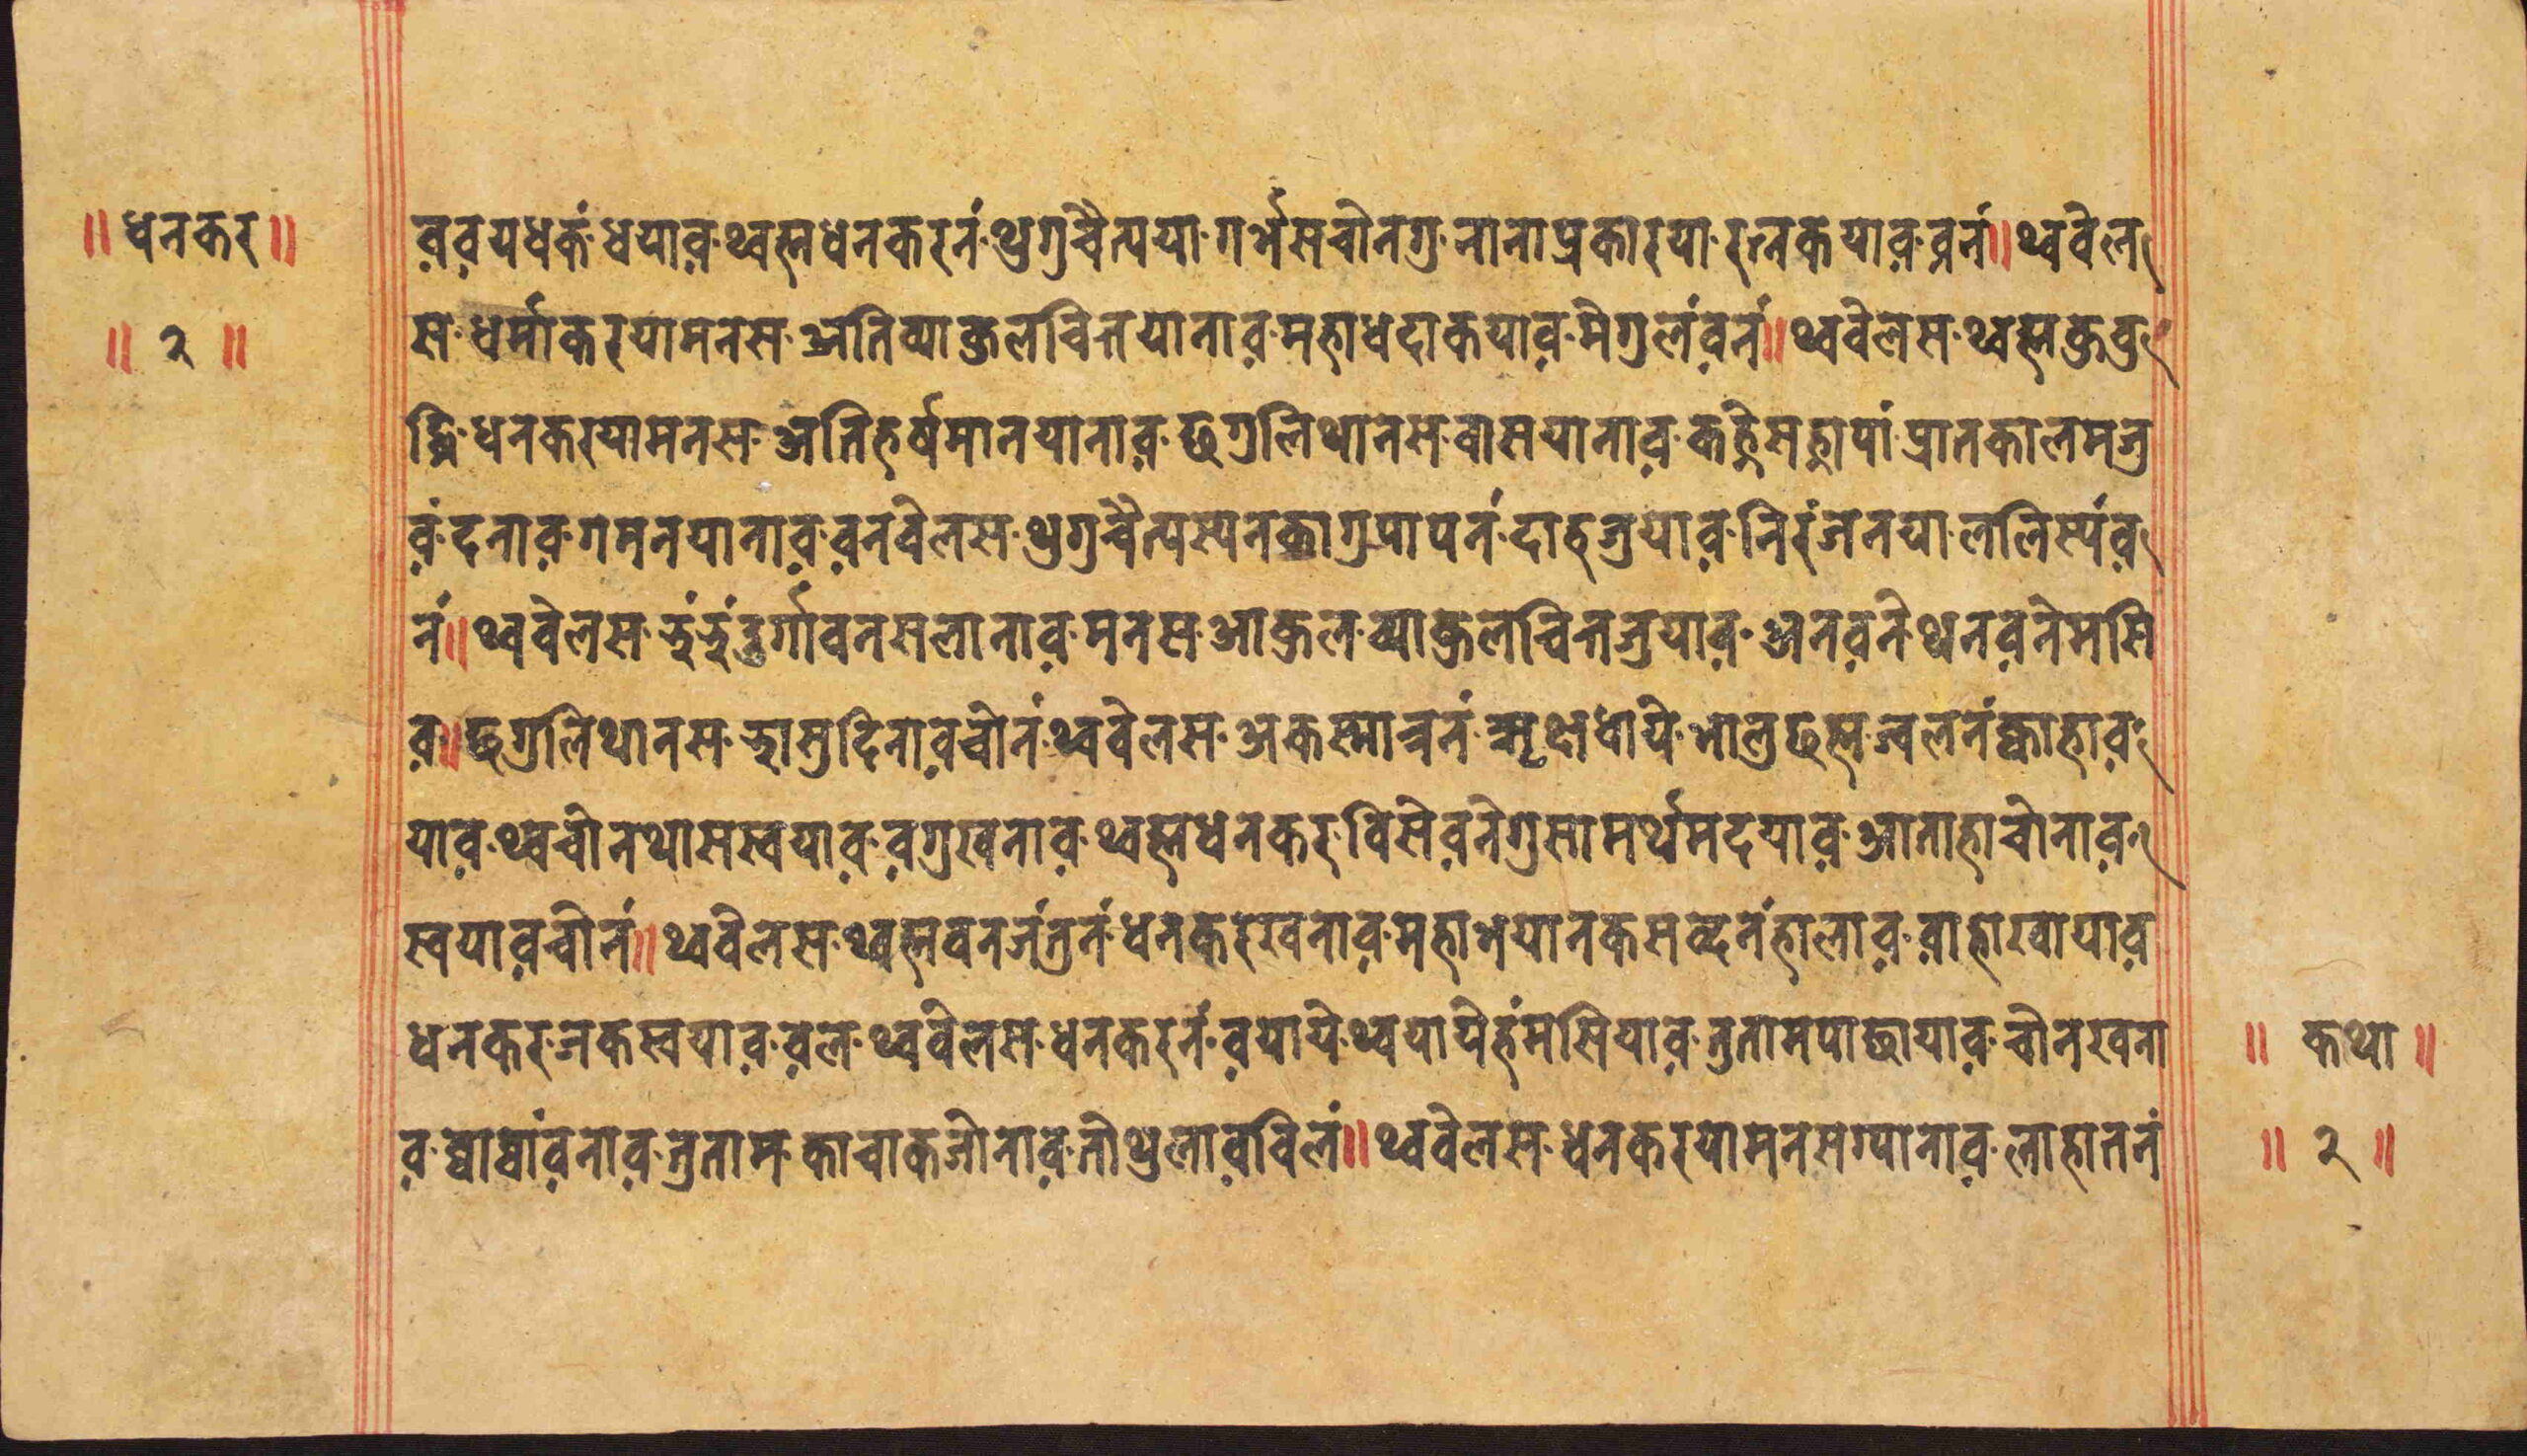 ॥ धनकर ॥
॥ २ ॥
व़व़यधकं धयाव़ थ्वह्मधनकरनं थुगुचैत्यया गर्भसचोनगु नानाप्रकारया रत्नकयाव़ व़नं॥ थ्ववेल
स धर्माकरयामनस अतिव्याकुलचित्तयानाव़ महाधंदाकयाव़ मेगुलंव़नं॥ थ्ववेलस थ्वह्मकुबु
द्धि धनकरयामनस अतिहर्षमानयानाव़ छगुलिथानस वासयानाव़ कह्नेसह्नापां प्रातकालमजु
व़ं दनाव़ गमनयानाव़ व़नवेलस थुगुचैत्यस्यनकागुपापनं दाहजुयाव़ निरंजनया ललिस्यंव़
नं॥ थ्ववेलस झुंझुंदुर्गावनसलानाव़ मनस आकुल व्याकुलचित्तजुयाव़ अनव़ने थनव़नेमसि
व़॥ छगुलिथानस झासुदिनाव़चोनं थ्ववेलस अकस्मात्रनं ऋक्षधाये भालुछह्म ज्वलनंक्वाहाव़
याव़ थ्वचोनथासस्वयाव़ व़गुखनाव़ थ्वह्मधनकर विसेव़नेगुसामर्थमदयाव़ आताहाचोनाव़
स्वयाव़चोनं॥ थ्ववेलस थ्वह्मवनजंतुनं धनकरखनाव़ महाभयानकसब्दनंहालाव़ व़ाहाखायाव़
धनकर जकस्वयाव़ व़ल थ्ववेलस धनकरनं व़याये थ्वयायेहंमसियाव़ तुतामपाछायाव़ चोनखना
व़ घ्वाघ्वांव़नाव़ तुताम काचाकजोनाव़ तोथुलाव़विलं॥ थ्ववेलस धनकरयामनसग्यानाव़ लाहातनं
॥ कथा ॥
॥ २ ॥